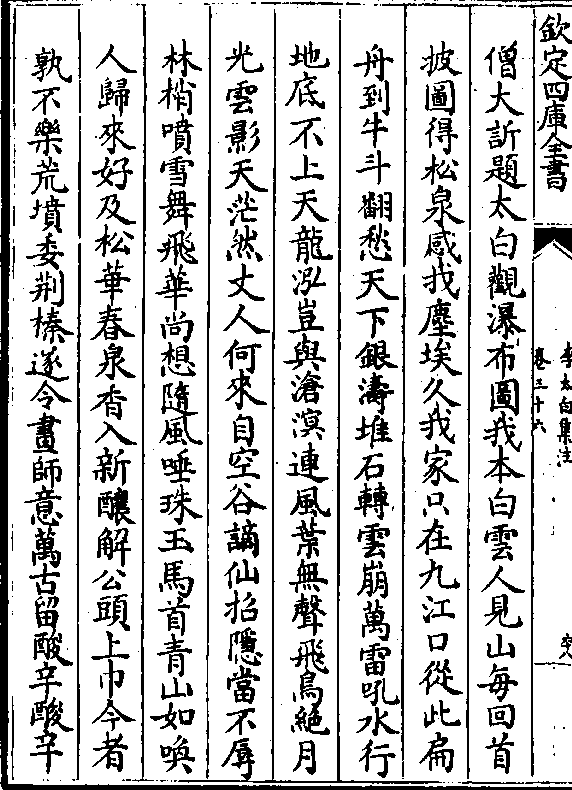 欽定四庫全書
李太白集注
卷三十六
僧大訢題太白觀瀑布圖我本白雲人見山每回首
披圖得松泉感我塵埃久我家只在九江口從此扁
舟到牛斗翻愁天下銀濤堆石轉雲崩萬雷吼水行
地底不上天龍泓豈與滄溟連風葉無聲飛鳥絕月
光雲影天茫然丈人何來自空谷謫仙招隱當不辱
林梢噴雪舞飛華尚想隨風唾珠玉馬首青山如喚
人歸來好及松華春泉香入新釀解公頭上巾今者
孰不樂荒墳委荆榛遂令畫師意萬古留酸辛酸辛